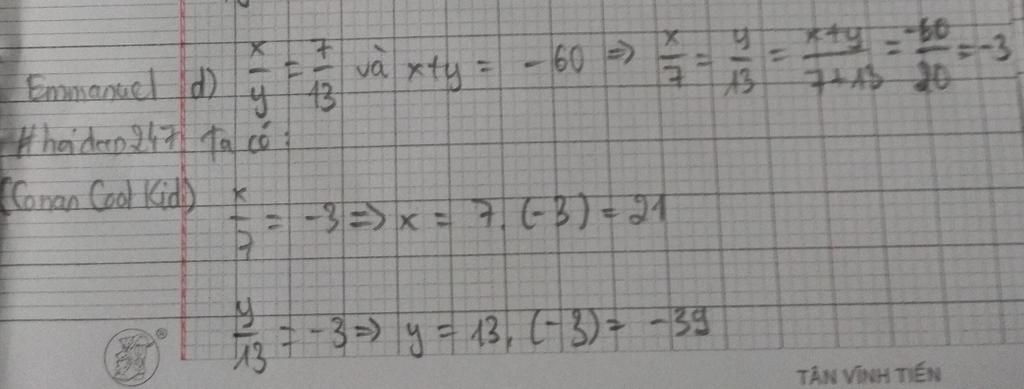 Emmanuel d) x/y = 7/13 và x+y = -60 => x/7 = y/13 = x+y/7+13 = -60/20 = -3
#hoidap247 Ta có:
(Conan Cool Kid) x/7 = -3 => x = 7.(-3) = 21
y/13 = -3 => y = 13.(-3) = -39
®
TÂN VĨNH TIẾN